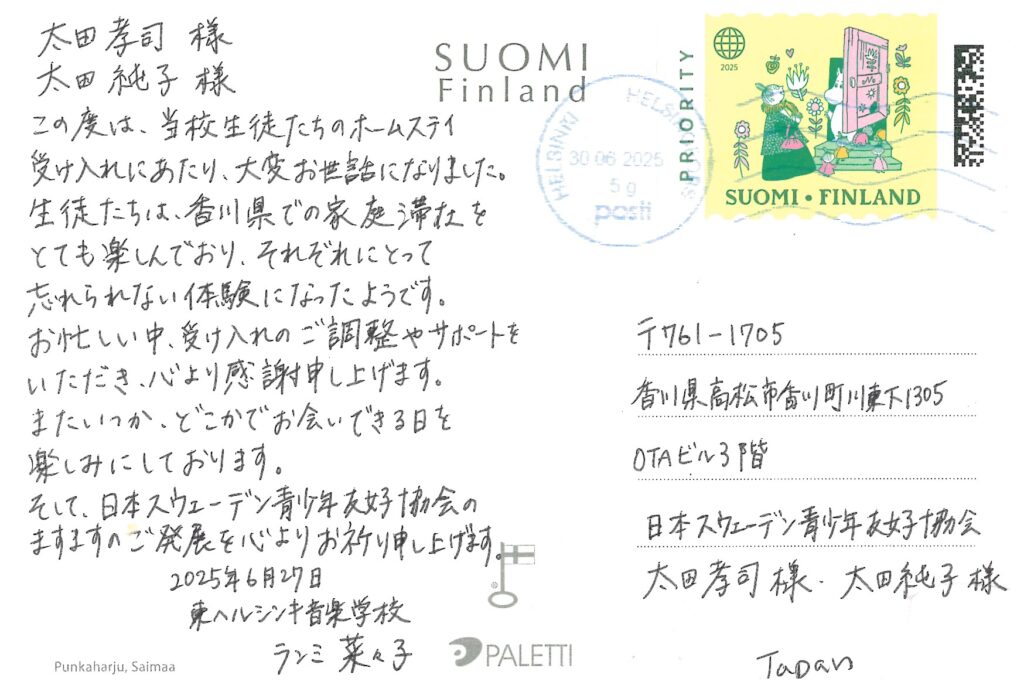 太田孝司 様
太田純子 様
この度は、当校生徒たちのホームステイ
受け入れにあたり、大変お世話になりました。
生徒たちは、香川県での家庭滞在を
とても楽しんでおり、それぞれにとって
忘れられない体験になったようです。
お忙しい中、受け入れのご調整やサポートを
いただき、心より感謝申し上げます。
またいつか、どこかでお会いできる日を
楽しみにしております。
そして、日本スウェーデン青少年友好協会の
ますますのご発展を心よりお祈り申し上げます。
2025年6月27日
東ヘルシンキ音楽学校
ランミ 菜々子
Punkaharju, Saimaa
SUOMI
Finland
PALETTI
HELSINKI
HELSINKI
30 06 2025
5 g
posti
PRIORITY
2025
SUOMI • FINLAND
〒761-1705
香川県高松市香川町川東下1305
OTAビル3階
日本スウェーデン青少年友好協会
太田孝司様・太田純子様
Japan